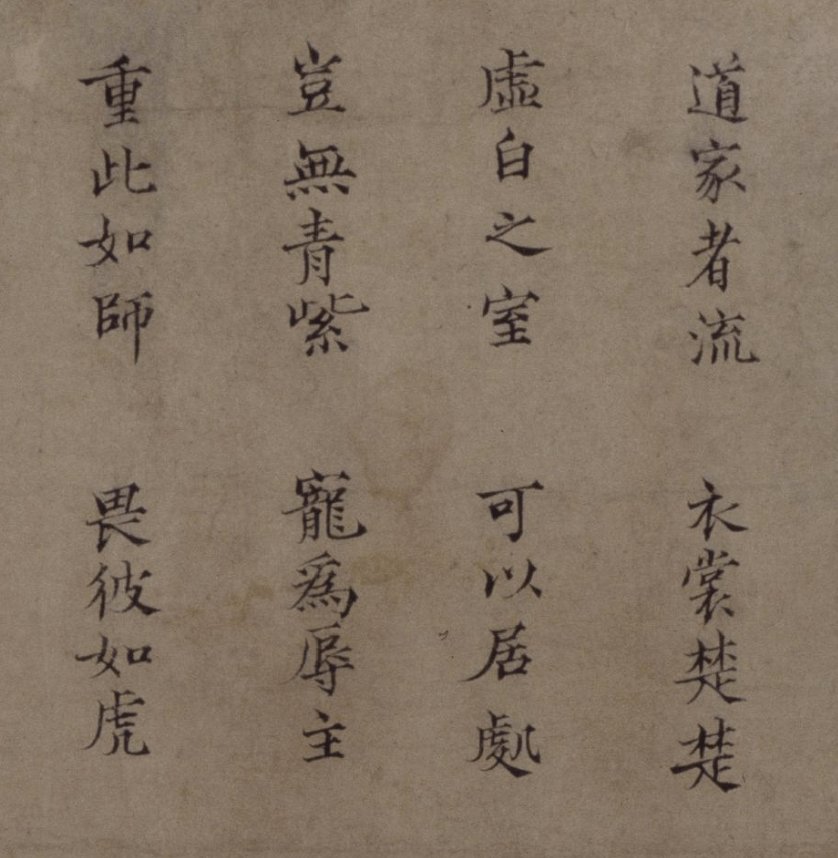 道家者流 衣裳楚楚
虛白之室 可以居處
豈無青紫 寵為辱主
重此如師 畏彼如虎